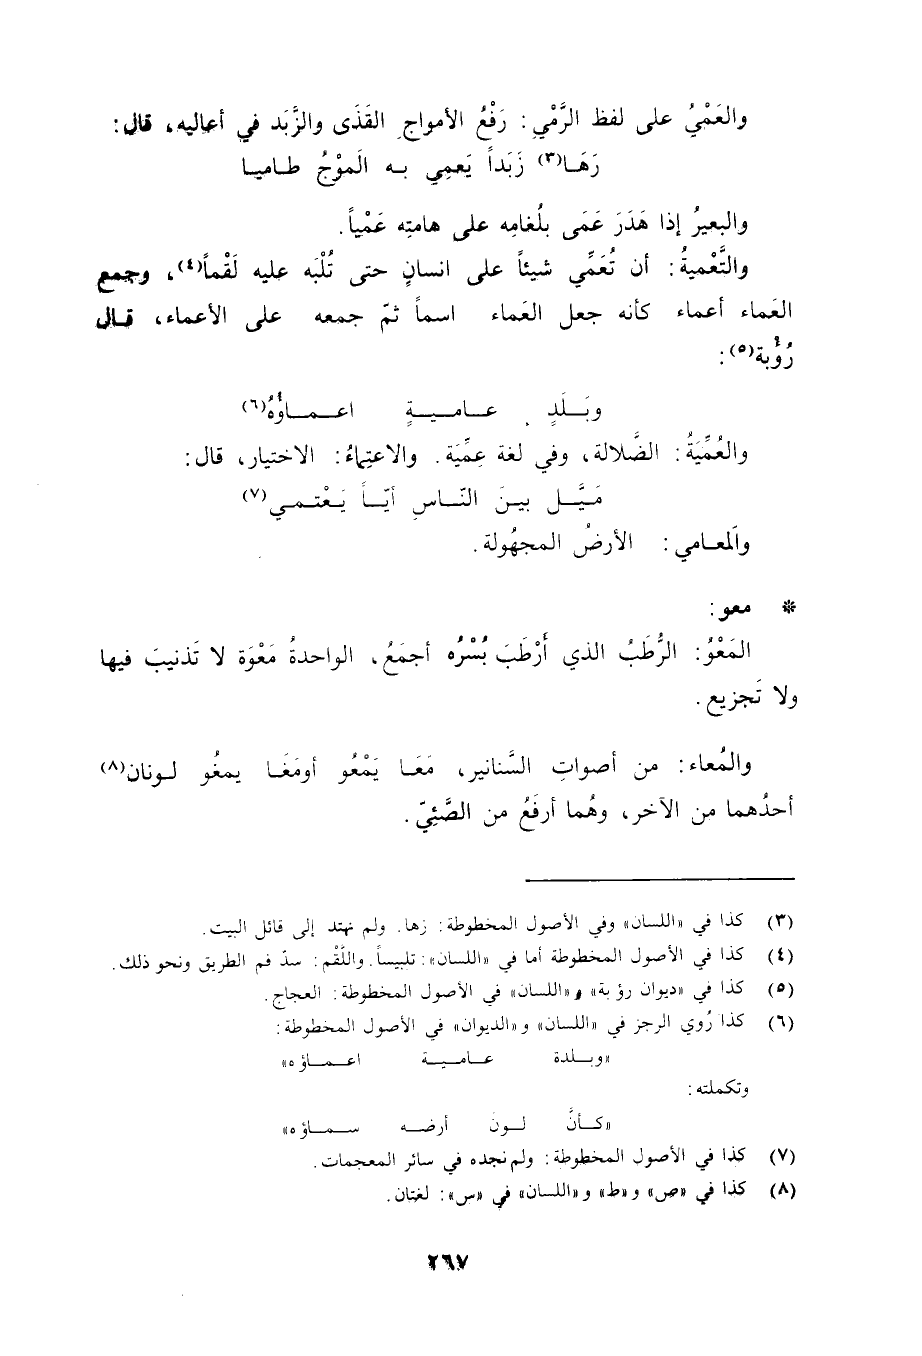 والعَمْيُ على لفظ الرَّمْيِ: رَفْعُ الأمواجِ القَذَى والزَّبَد في أعاليه، قال:
رَهَا(٣) زَبَداً يَعمِي به الَموْجُ طاميا
والبعيرُ إذا هَدَرَ عَمَى بلُغامِه على هامتِه عَمْياً.
والتَّعْميةُ: أن تُعَمِّي شيئاً على انسانٍ حتى تُلْبَه عليه لَقْماً(٤)، وجمع
العَماء أعماء كأنه جعل العَماء اسماً ثمّ جمعه على الأعماء، قال
رُؤْبة(٥):
وبَلَدٍ عاميةٍ اعماؤُهُ(٦)
والعُمِّيَّةُ: الضَّلالة، وفي لغة عِمِّيَة. والاعتِماءُ: الاختيار، قال:
مَيَّل بينَ النّاسِ أيّاً يَعْتمي(٧)
والَمعامي: الأرضُ المجهُولة.
* معو:
المَعْوُ: الرُّطَبُ الذي أَرْطَبَ بُسْرُه أجمَعُ، الواحدةُ مَعْوَة لا تَذنيبَ فيها
ولا تَجزيع.
والُمعاء: من أصواتِ السَّنانير، مَعَا يَمْعُو أومَغَا يمغُو لونان(٨)
أحدُهما من الآخر، وهُما أرفَعُ من الصَّئِيّ.
(٣) كذا في «اللسان» وفي الأصول المخطوطة: زها. ولم نهتد إلى قائل البيت.
(٤) كذا في الأصول المخطوطة أما في «اللسان»: تلبيساً. واللَّقْم: سدّ فم الطريق ونحو ذلك.
(٥) كذا في «ديوان رؤبة» و«اللسان» في الأصول المخطوطة: العجاج.
(٦) كذا رُوي الرجز في «اللسان» و«الديوان» في الأصول المخطوطة:
«وبلدة عامية اعماؤه»
وتكملته:
«كأنَّ لون أرضه سماؤه»
(٧) كذا في الأصول المخطوطة: ولم نجده في سائر المعجمات.
(٨) كذا في «ص» و«ط» و«اللسان» في «س»: لغتان.
٢٦٧